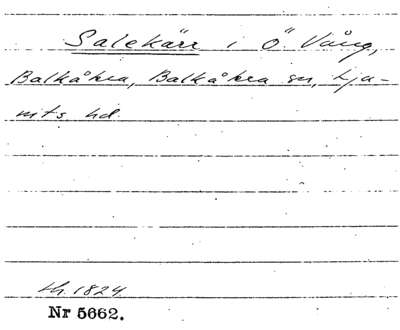 Salekärr i Ö Vång,
Balkåkra, Balkåkra sn, Lju-
nits hd.
th. 1824
Nr 5662.